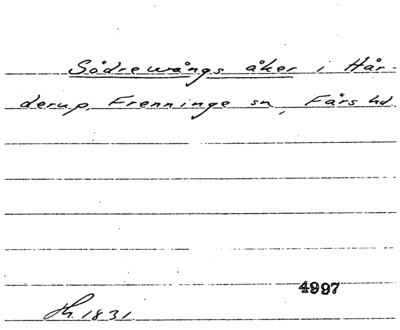 Södrewångs åker i Hår-
derup, Frenninge sn, Färs hd
4997
Lh. 1831